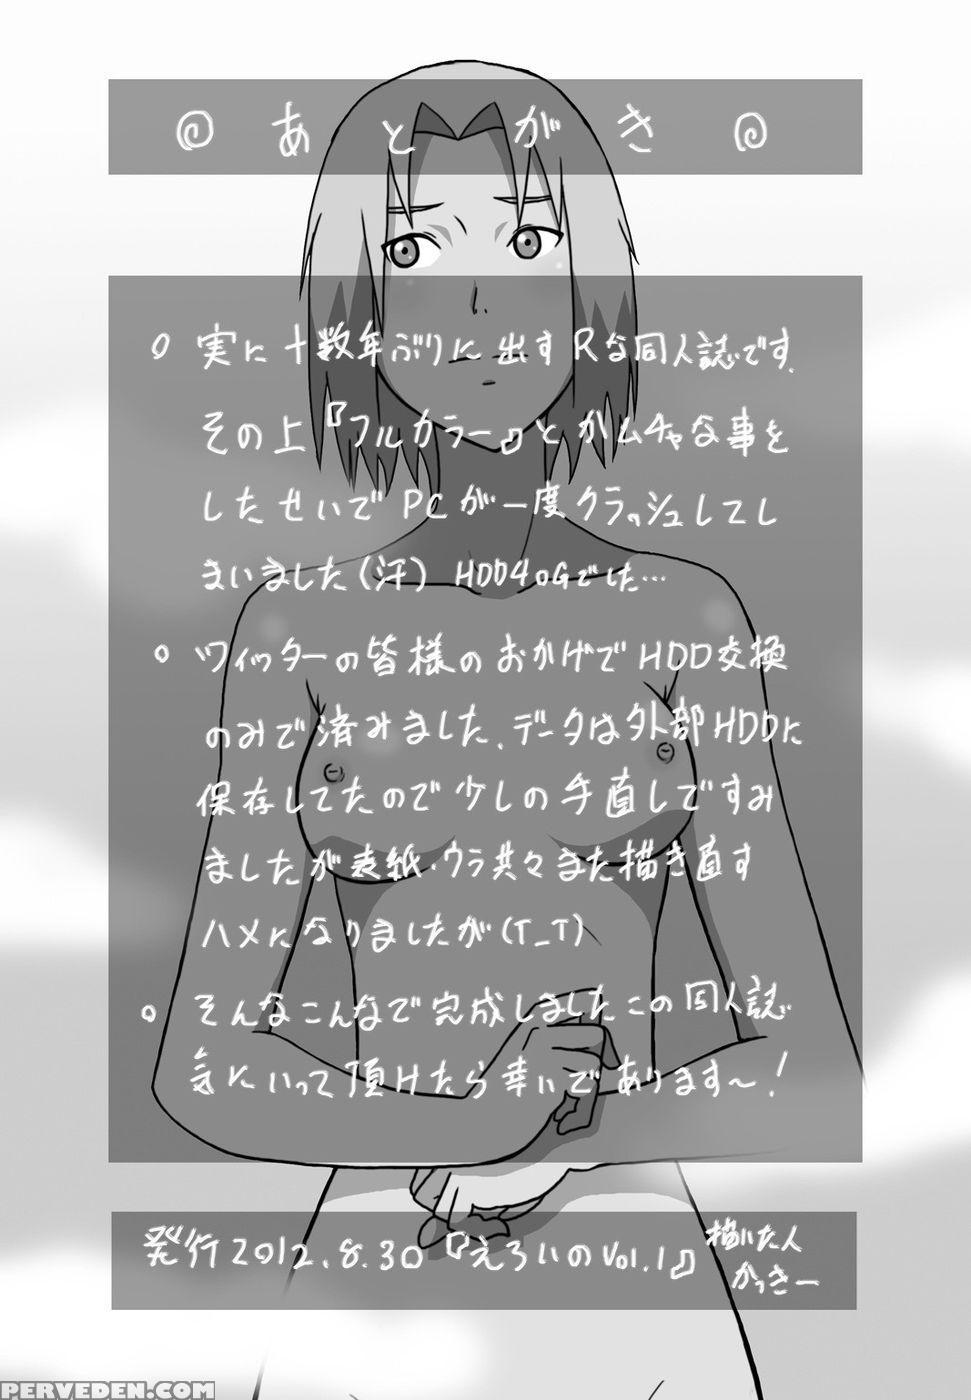 ◎ あとがき ◎
○ 実に十数年ぶりに出すRな同人誌です.
その上『フルカラー』とかムチャな事を
したせいでPCが一度クラッシュしてし
まいました(汗) HDD40Gでした…
○ ツイッターの皆様のおかげでHDD交換
のみで済みました.データは外部HDDに
保存してたので少しの手直しですみ
ましたが表紙・ウラ共々また描き直す
ハメになりましたが(T_T)
○ そんなこんなで完成しましたこの同人誌
気にいって頂けたら幸いであります〜!
発行2012.8.30『えろいのVol.1』
描いた人
かっきー
PERVEDEN.COM